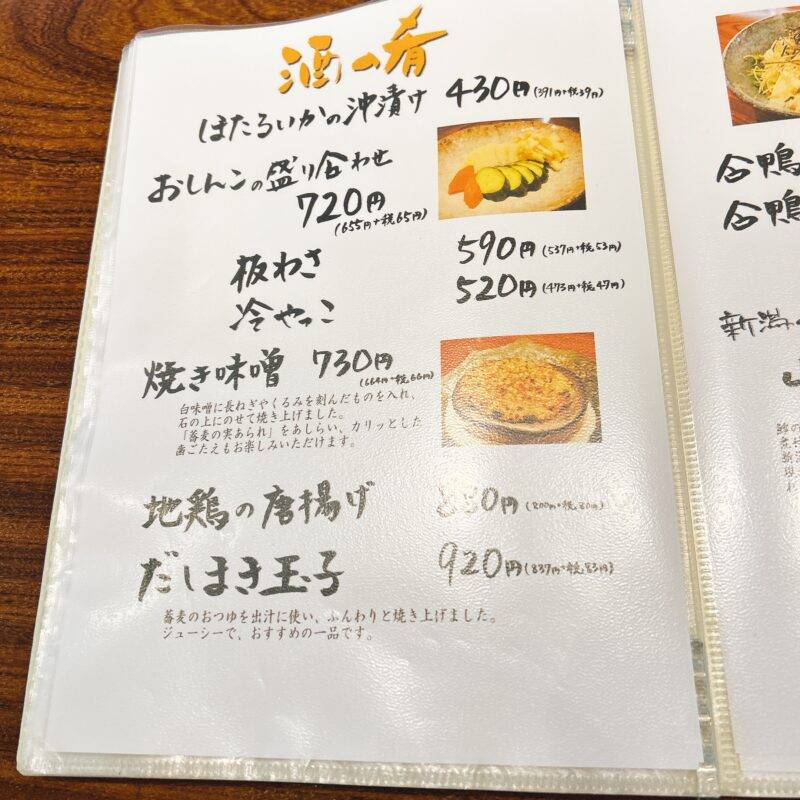 酒の肴
ほたるいかの沖漬け 430円(391円+税39円)
おしんこの盛り合わせ
720円
(655円+税65円)
板わさ 590円(537円+税53円)
冷やっこ 520円(473円+税47円)
焼き味噌 730円
(664円+税66円)
白味噌に長ねぎやくるみを刻んだものを入れ、
石の上にのせて焼き上げました。
「蕎麦の実あられ」をあしらい、カリッとした
歯ごたえもお楽しみいただけます。
地鶏の唐揚げ 880円(800円+税80円)
だしまき玉子 920円(837円+税83円)
蕎麦のおつゆを出汁に使い、ふんわりと焼き上げました。
ジューシーで、おすすめの一品です。
合鴨
合鴨
新潟の